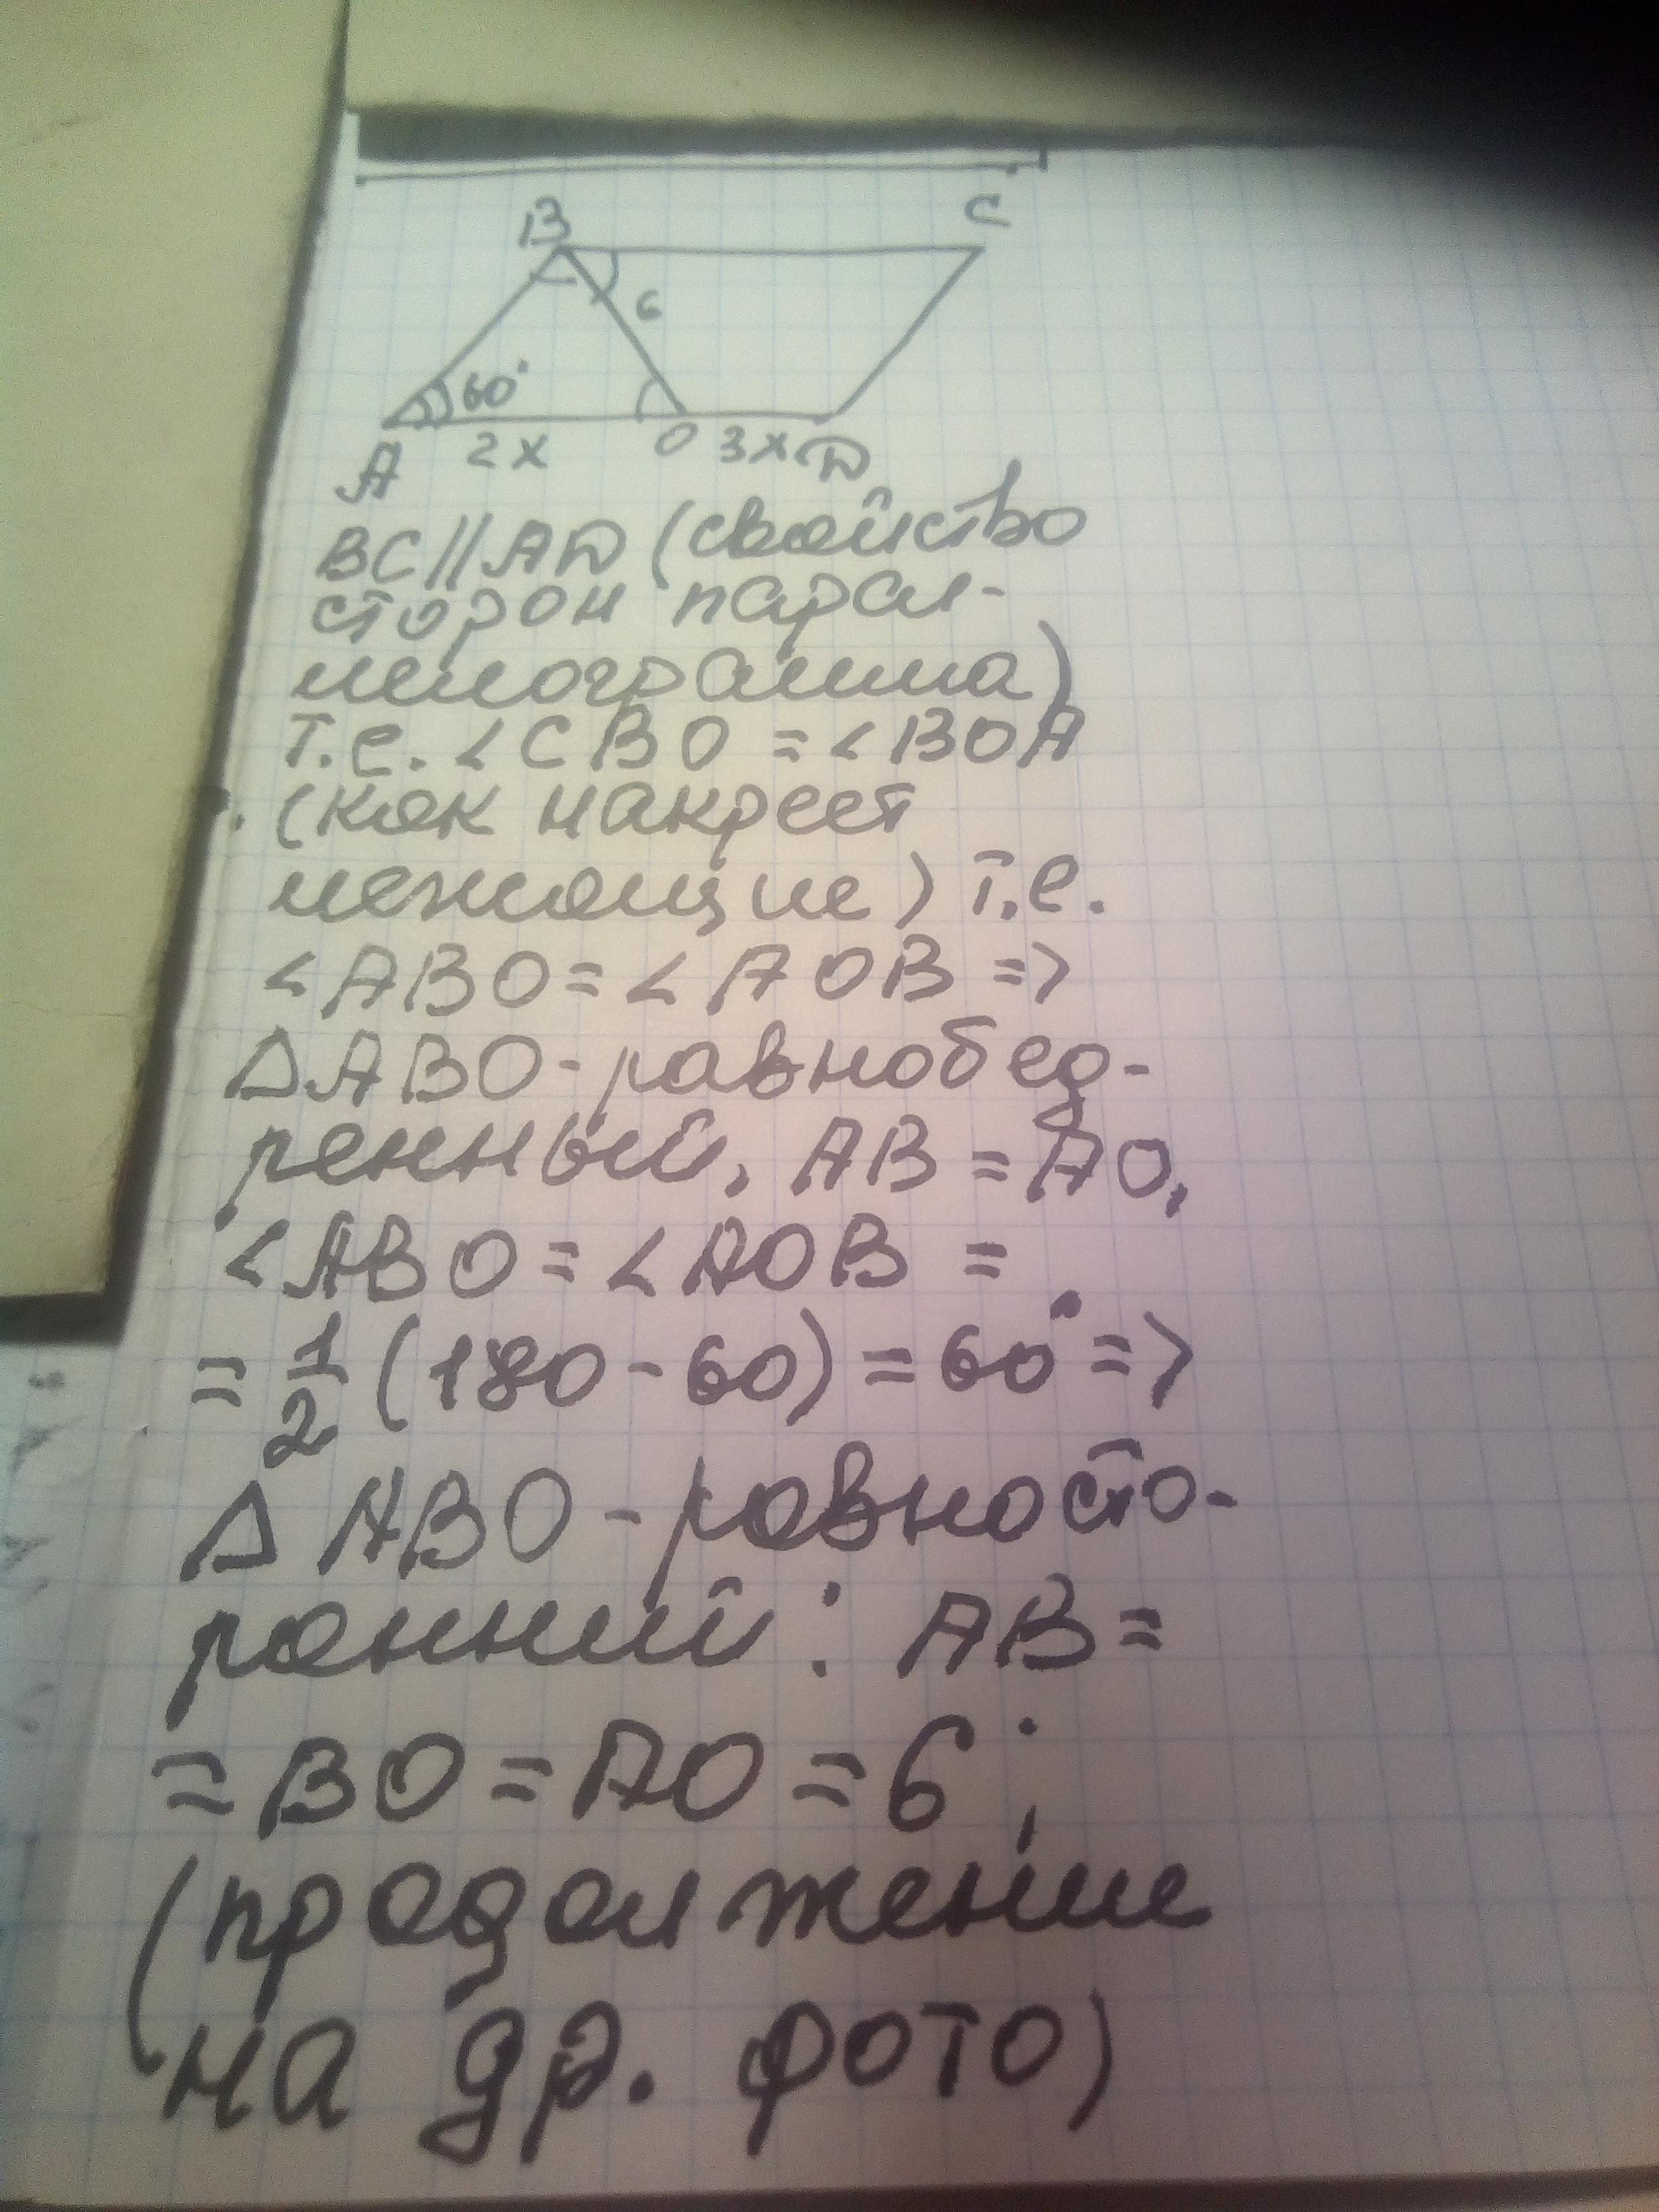 B C
6
60°
A 2x O 3x D
BC || AD (свойство
сторон парал-
лелограмма)
т.е. < CBO = < BOA
(как накрест
лежащие) т.е.
< ABO = < AOB =>
△ ABO - равнобед-
ренный, AB = AO,
< ABO = < AOB =
= 1/2 (180 - 60) = 60° =>
△ ABO - равносто-
ронний: AB =
= BO = AO = 6;
(продолжение
на др. фото)